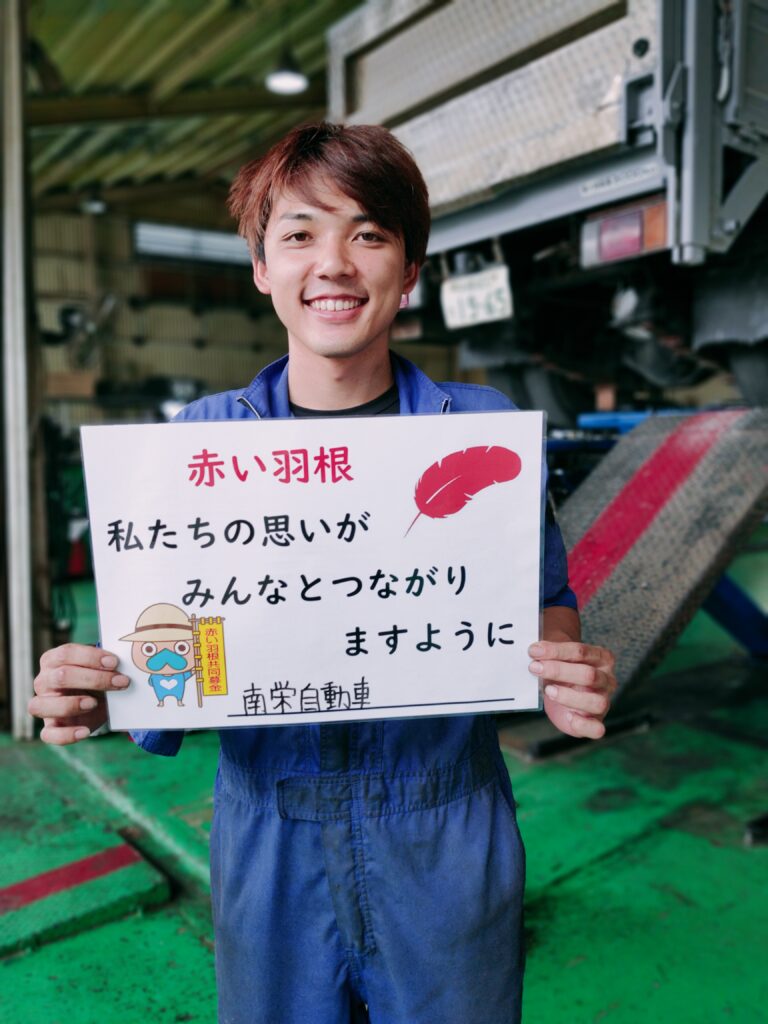 赤い羽根
私たちの思いが
みんなとつながり
ますように
赤い羽根共同募金
南栄自動車